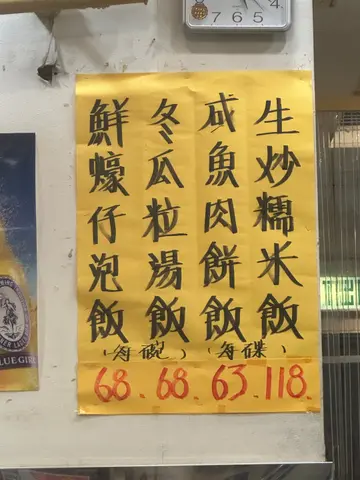 7 6 5 4
生炒糯米飯
咸魚肉餅飯
冬瓜粒湯飯
鮮蠔仔泡飯
(每碗) (每碟)
68. 68. 63. 118.
LUE GIRL